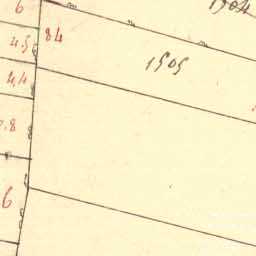 6
1904
84
4.5
1505
4.4
.8
6